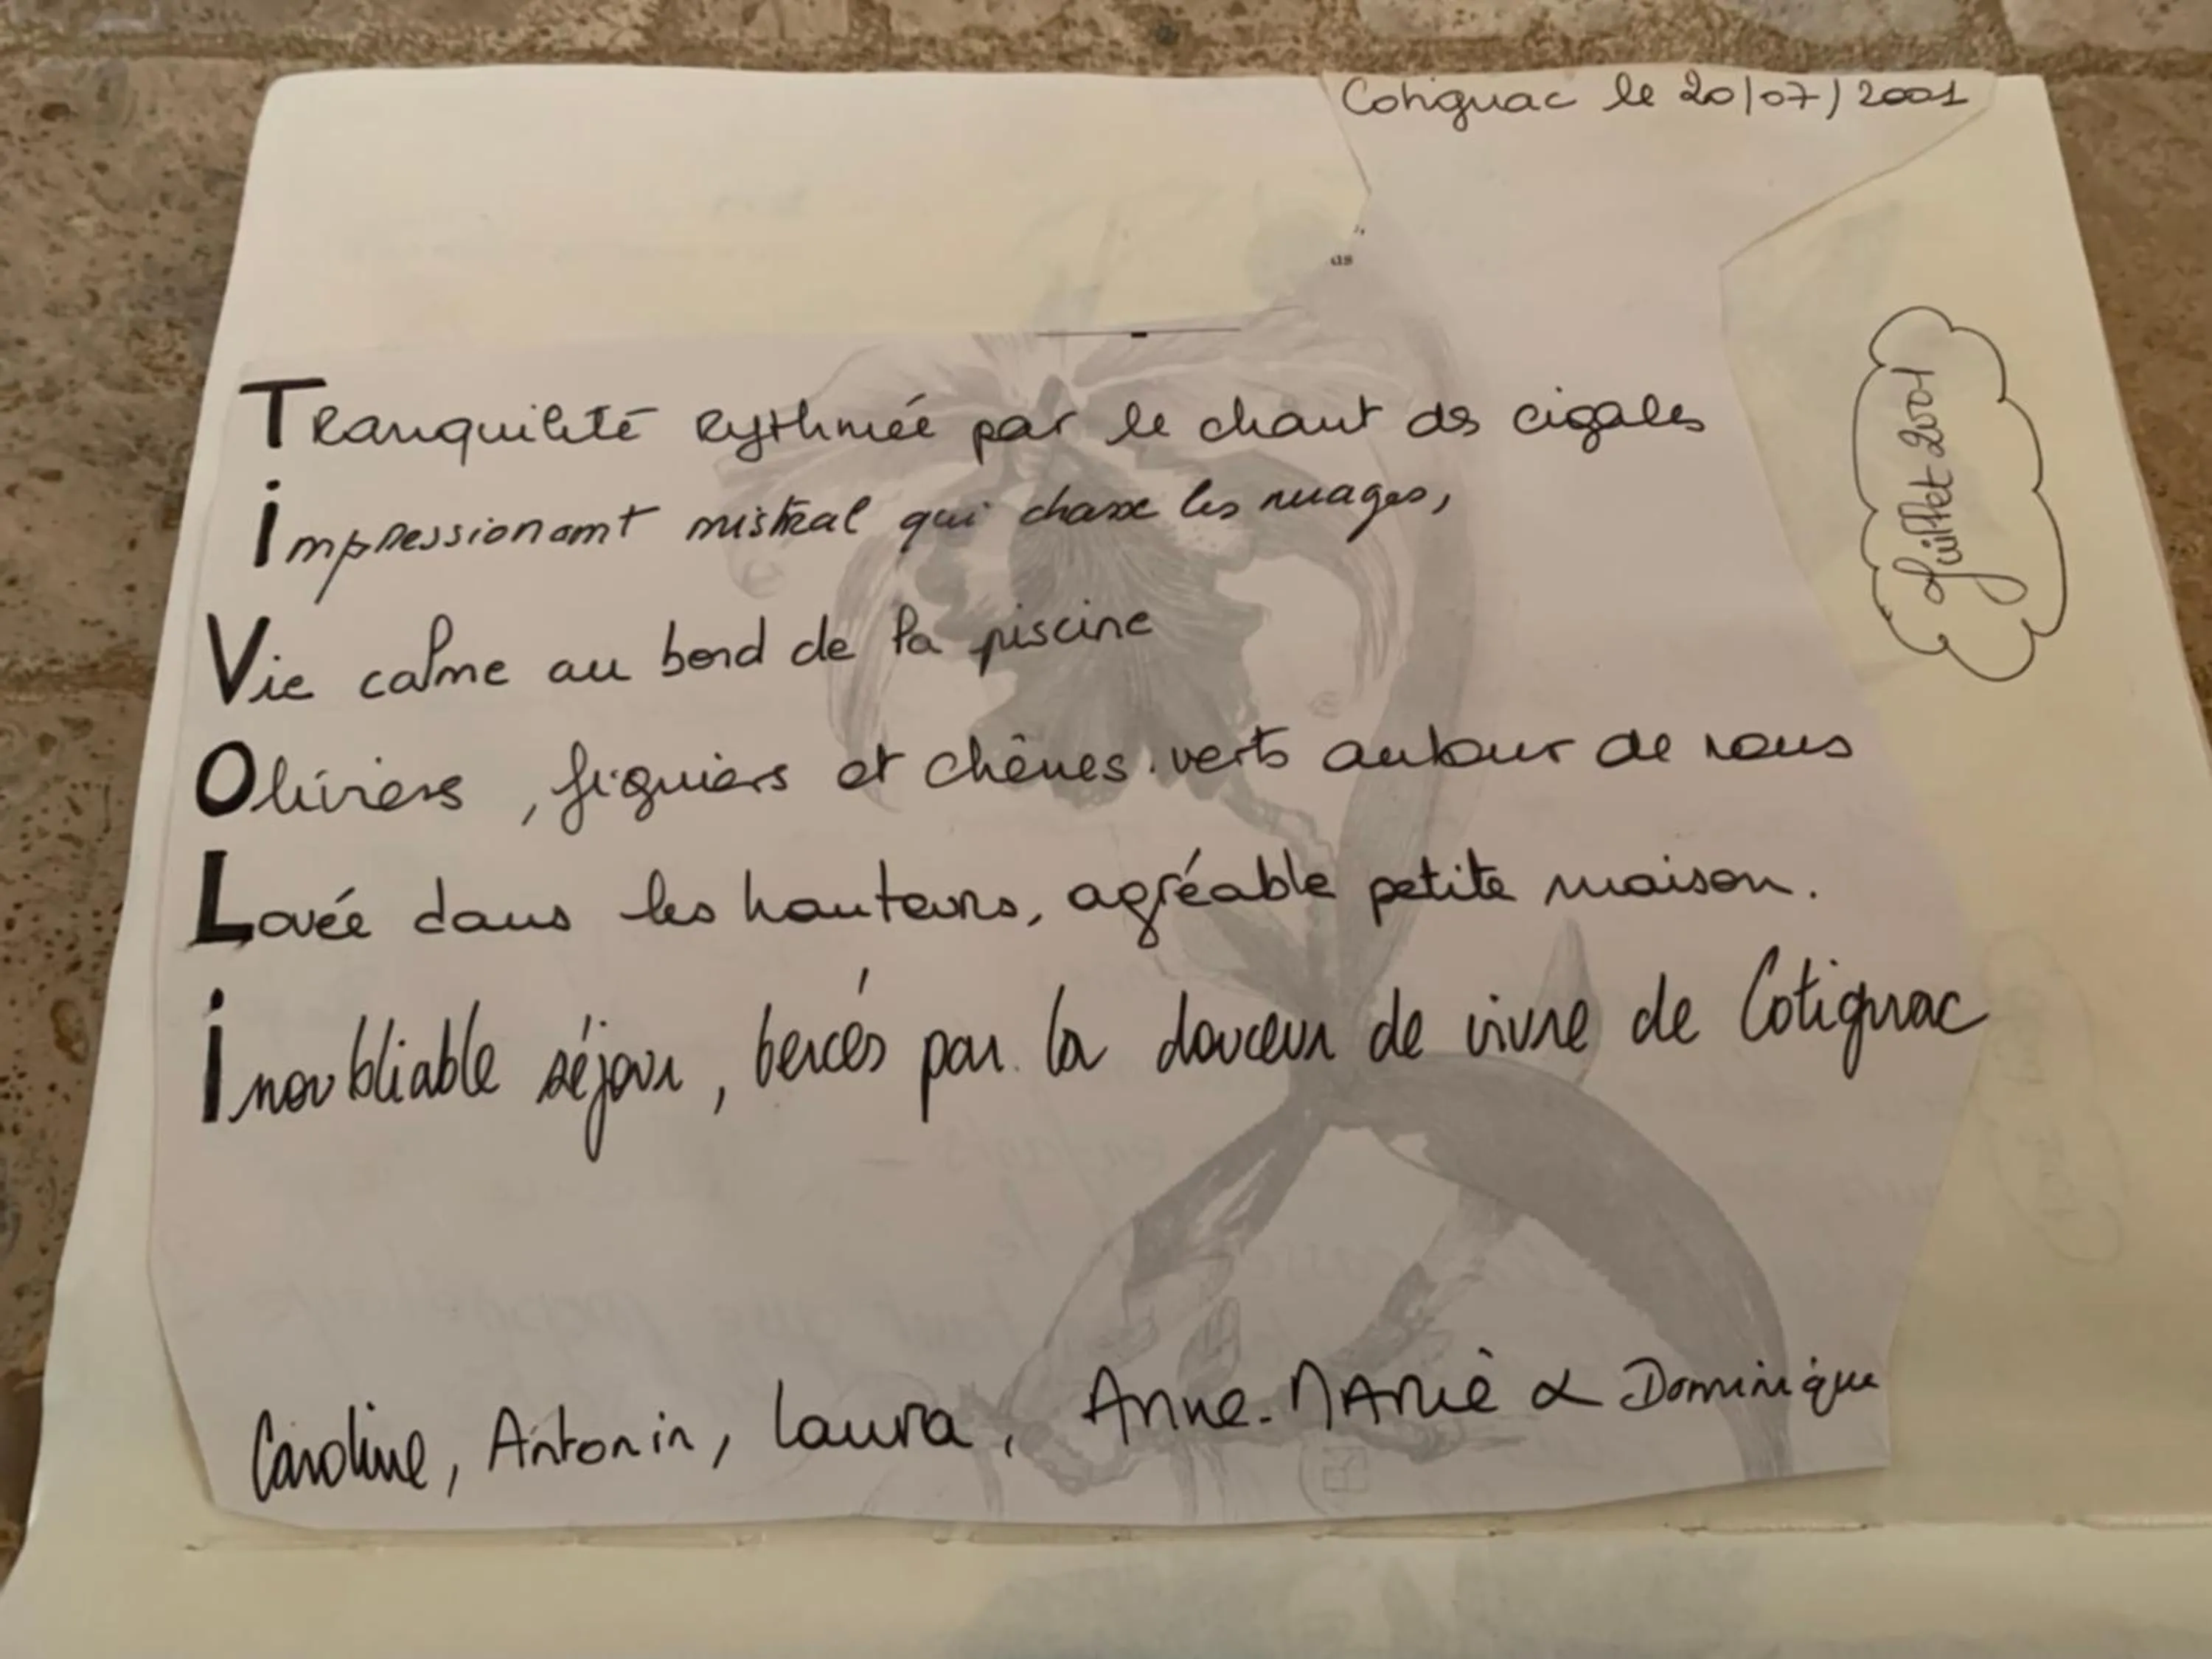 Cotignac le 20/07/2001
as
Juillet 2001
Tranquilité rythmée par le chant des cigales
impressionant mistral qui chasse les nuages,
Vie calme au bord de la piscine
Oliviers, figuiers et chênes verts autour de nous
Lovée dans les hauteurs, agréable petite maison.
inoubliable séjour, bercés par la douceur de vivre de Cotignac
Caroline, Antonin, Laura, Anne-Marie & Dominique